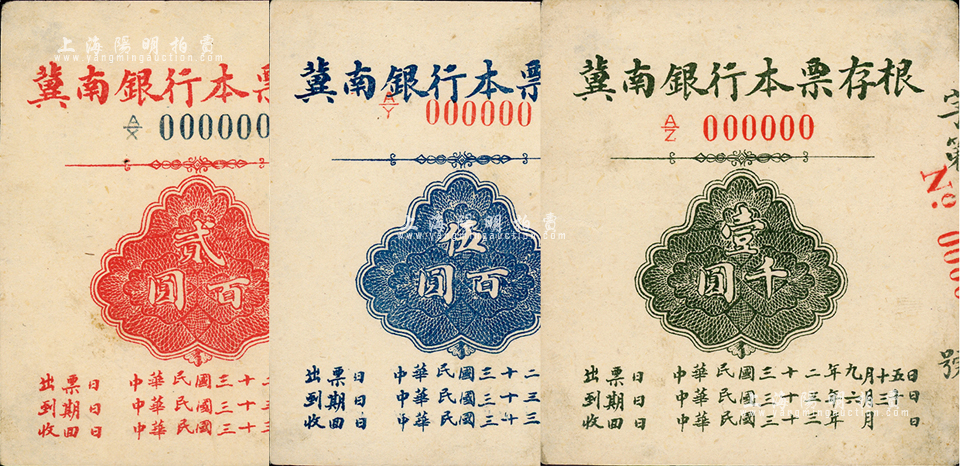 上海陽明拍賣
www.yangmingauction.com
冀南銀行本票
A/X 000000
貳百圓
出票日 中華民國三十二
到期日 中華民國三十三
收回日 中華民國三十
上海陽明拍賣
www.yangmingauction.com
冀南銀行本票
A/Y 000000
伍百圓
出票日 中華民國三十二
到期日 中華民國三十三
收回日 中華民國三十三
冀南銀行本票存根
A/Z 000000
壹千圓
出票日 中華民國三十二年九月十五日
到期日 中華民國三十三年六月三十日
收回日 中華民國三十三年 月 日
字第
No.
號
上海陽明拍賣
www.yangmingauction.com
上海陽明拍賣
www.yangmingauction.com